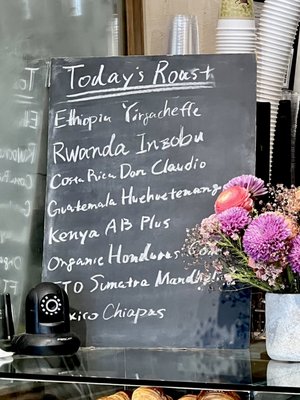 Today's Roast
Ethiopia Yirgacheffe
Rwanda Inzobu
Costa Rica Don Claudio
Guatemala Huehuetenang
Kenya AB Plus
Organic Honduras
FTO Sumatra Mandhel
xico Chiapas